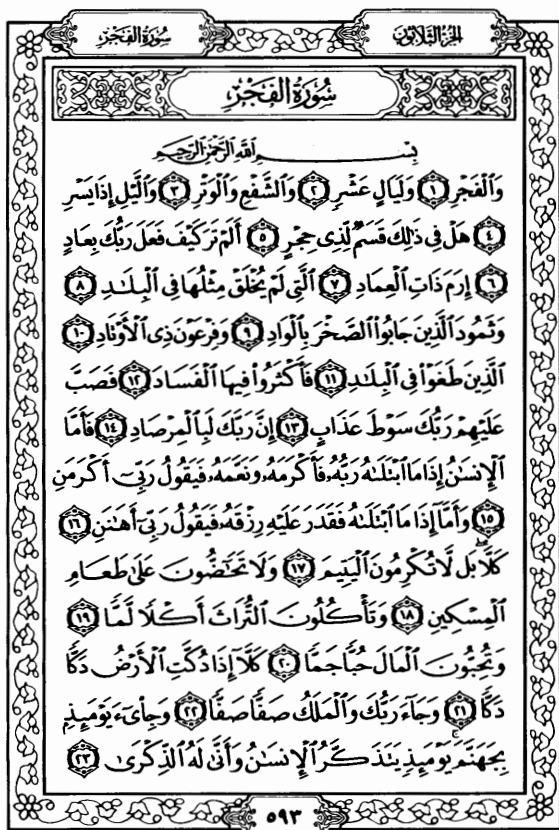 سُورَةُ الفَجْرِ
الجُزْءُ الثَّلَاثُونَ
سُورَةُ الفَجْرِ
بِسْمِ اللَّهِ الرَّحْمَٰنِ الرَّحِيمِ
وَالْفَجْرِ ۝١ وَلَيَالٍ عَشْرٍ ۝٢ وَالشَّفْعِ وَالْوَتْرِ ۝٣ وَالَّيْلِ إِذَا يَسْرِ
۝٤ هَلْ فِي ذَٰلِكَ قَسَمٌ لِّذِي حِجْرٍ ۝٥ أَلَمْ تَرَ كَيْفَ فَعَلَ رَبُّكَ بِعَادٍ
۝٦ إِرَمَ ذَاتِ الْعِمَادِ ۝٧ الَّتِي لَمْ يُخْلَقْ مِثْلُهَا فِي الْبِلَٰدِ ۝٨
وَثَمُودَ الَّذِينَ جَابُوا الصَّخْرَ بِالْوَادِ ۝٩ وَفِرْعَوْنَ ذِي الْأَوْتَادِ ۝١٠
الَّذِينَ طَغَوْا فِي الْبِلَٰدِ ۝١١ فَأَكْثَرُوا فِيهَا الْفَسَادَ ۝١٢ فَصَبَّ
عَلَيْهِمْ رَبُّكَ سَوْطَ عَذَابٍ ۝١٣ إِنَّ رَبَّكَ لَبِالْمِرْصَادِ ۝١٤ فَأَمَّا
الْإِنسَٰنُ إِذَا مَا ابْتَلَىٰهُ رَبُّهُۥ فَأَكْرَمَهُۥ وَنَعَّمَهُۥ فَيَقُولُ رَبِّيٓ أَكْرَمَنِ
۝١٥ وَأَمَّآ إِذَا مَا ابْتَلَىٰهُ فَقَدَرَ عَلَيْهِ رِزْقَهُۥ فَيَقُولُ رَبِّيٓ أَهَٰنَنِ ۝١٦
كَلَّا ۖ بَل لَّا تُكْرِمُونَ الْيَتِيمَ ۝١٧ وَلَا تَحَٰٓضُّونَ عَلَىٰ طَعَامِ
الْمِسْكِينِ ۝١٨ وَتَأْكُلُونَ التُّرَاثَ أَكْلًا لَّمًّا ۝١٩
وَتُحِبُّونَ الْمَالَ حُبًّا جَمًّا ۝٢٠ كَلَّآ إِذَا دُكَّتِ الْأَرْضُ دَكًّا
دَكًّا ۝٢١ وَجَآءَ رَبُّكَ وَالْمَلَكُ صَفًّا صَفًّا ۝٢٢ وَجِا۟يٓءَ يَوْمَئِذٍ
بِجَهَنَّمَ ۚ يَوْمَئِذٍ يَتَذَكَّرُ الْإِنسَٰنُ وَأَنَّىٰ لَهُ الذِّكْرَىٰ ۝٢٣
٥٩٣